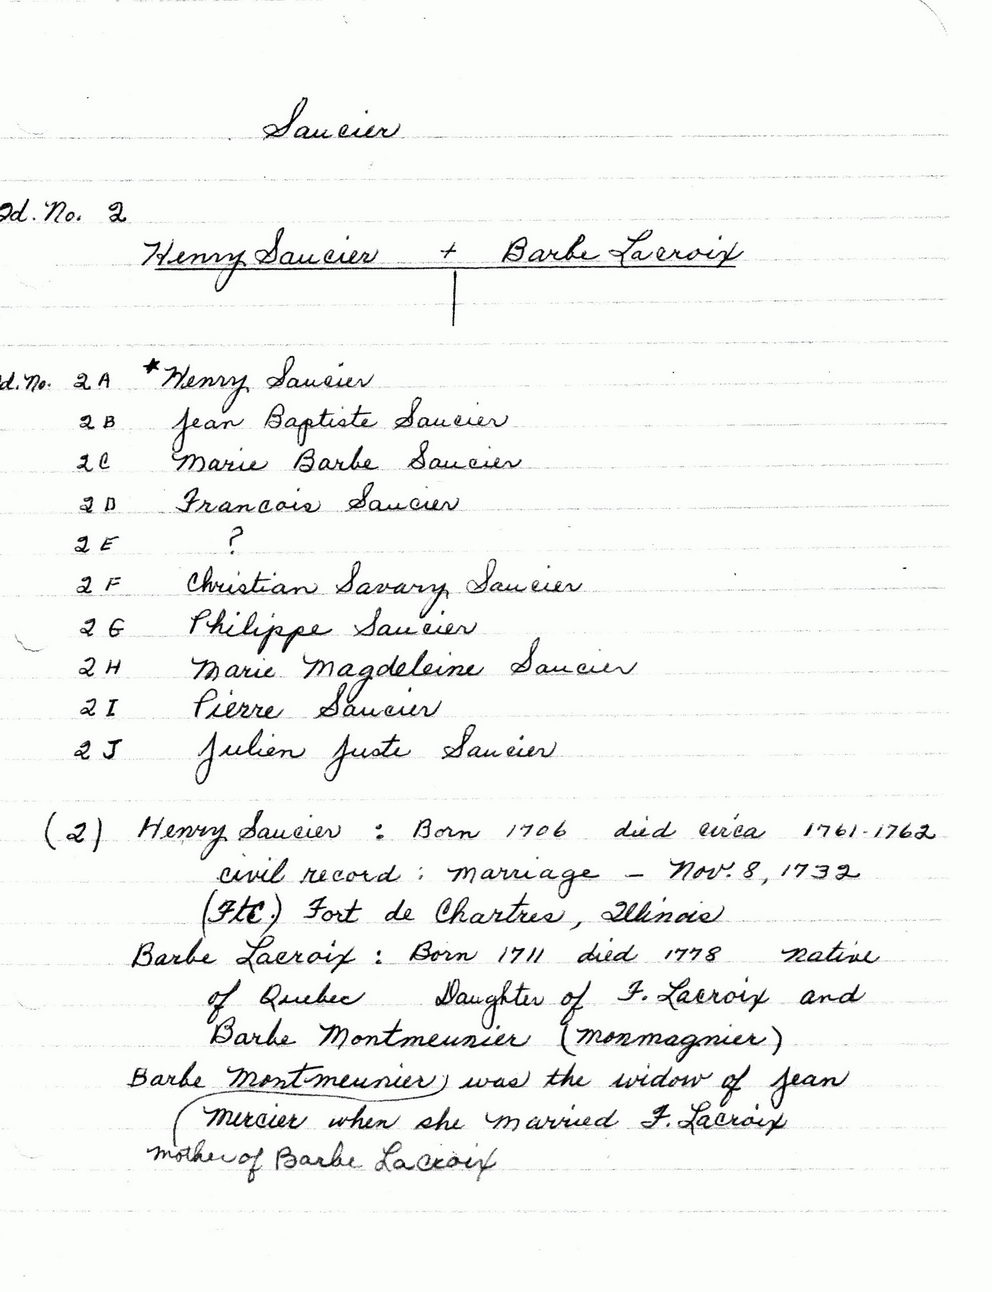 Saucier
Id. No. 2
Henry Saucier + Barbe Lacroix
d. No. 2A *Henry Saucier
2B Jean Baptiste Saucier
2C Marie Barbe Saucier
2D Francois Saucier
2E ?
2F Christian Savary Saucier
2G Philippe Saucier
2H Marie Magdeleine Saucier
2I Pierre Saucier
2J Julien Juste Saucier
(2) Henry Saucier : Born 1706 died circa 1761-1762
civil record : marriage - Nov. 8, 1732
(FtC.) Fort de Chartres, Illinois
Barbe Lacroix : Born 1711 died 1778 native
of Quebec Daughter of F. Lacroix and
Barbe Montmeunier (Monmagnier)
Barbe Montmeunier, was the widow of Jean
Mercier when she married F. Lacroix
mother of Barbe Lacroix